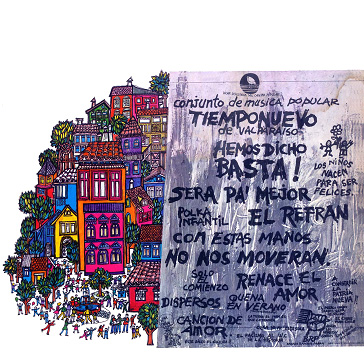 conjunto de musica popular
TIEMPONUEVO
de VALPARAISO
HEMOS DICHO
BASTA!
LOS NIÑOS
NACEN
PARA SER
FELICES
SERA PA' MEJOR
POLKA
INFANTIL
EL REFRAN
CON ESTAS MANOS
NO NOS MOVERAN
SOLO
EL
COMIENZO
RENACE EL
AMOR
DISPERSOS
QUENA
EN VERANO
CANCION DE
AMOR